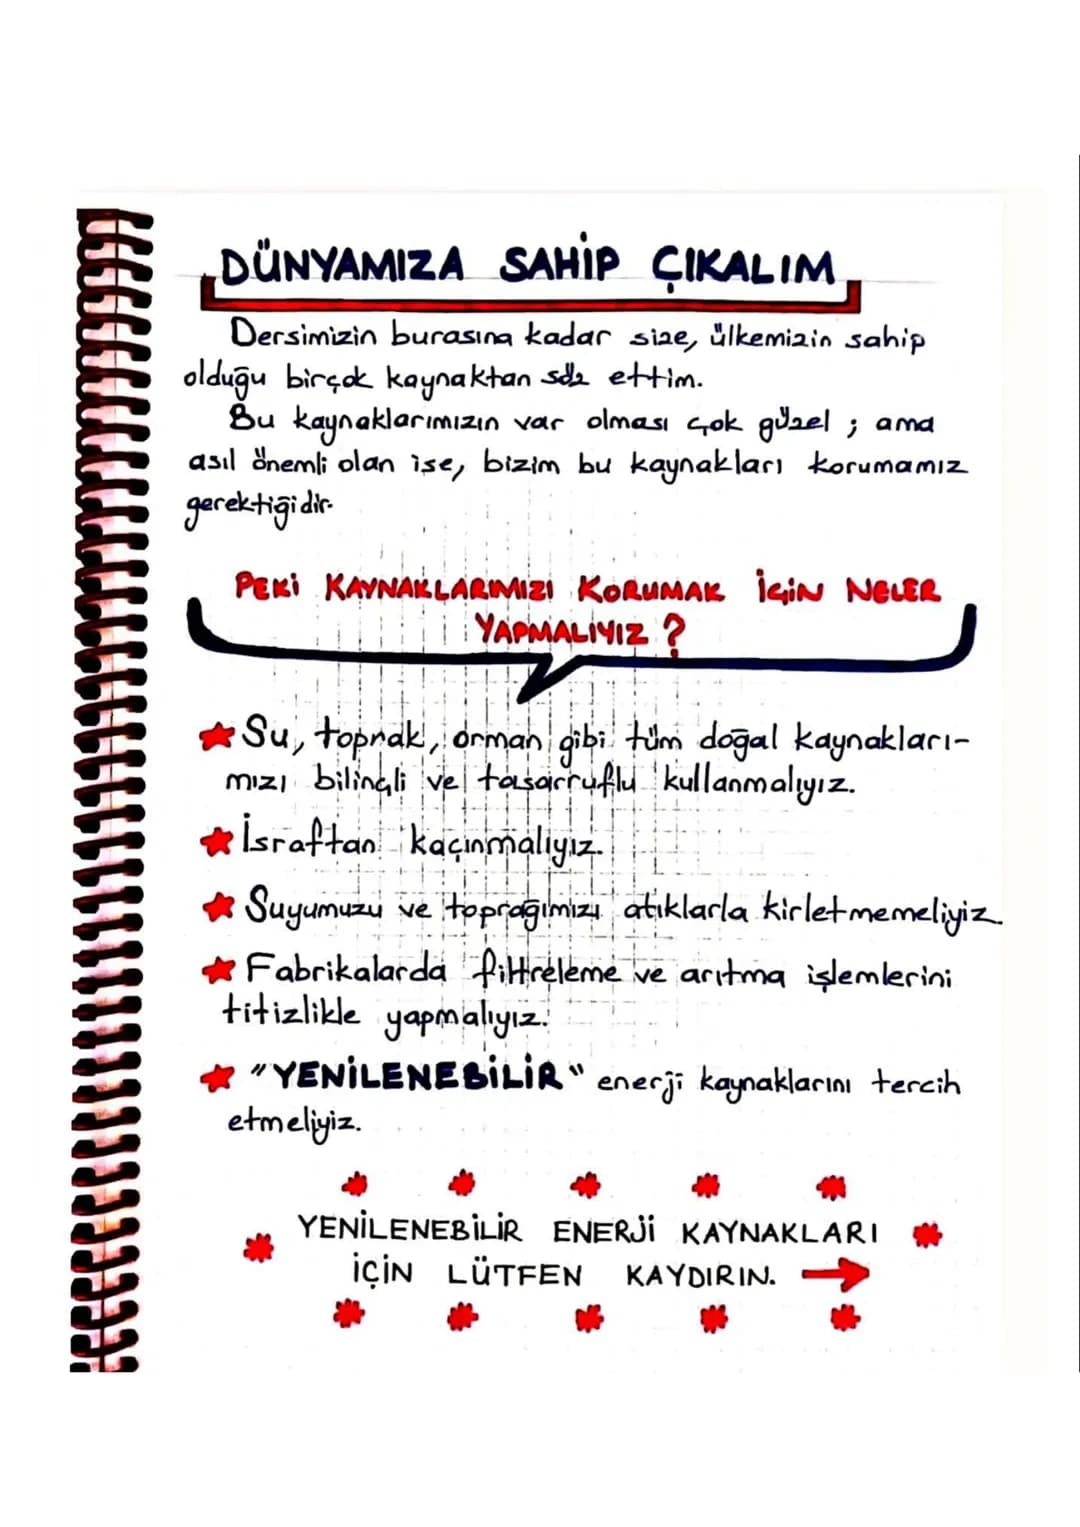 DÜNYAMIZA SAHİP ÇIKALIM
Dersimizin burasına kadar size, ülkemizin sahip
olduğu birçok kaynaktan söz ettim.
Bu kaynaklarımızın var olması çok güzel ; ama
asıl önemli olan ise, bizim bu kaynakları korumamız
gerektiğidir.
PEKİ KAYNAKLARIMIZI KORUMAK İÇİN NELER
YAPMALIYIZ ?
Su, toprak, orman gibi tüm doğal kaynakları-
mızı bilinçli ve tasarruflu kullanmalıyız.
İsraftan kaçınmalıyız.
Suyumuzu ve toprağımızı atıklarla kirletmemeliyiz.
Fabrikalarda filtreleme ve arıtma işlemlerini
titizlikle yapmalıyız.
"YENİLENEBİLİR" enerji kaynaklarını tercih
etmeliyiz.
YENİLENEBİLİR ENERJİ KAYNAKLARI
İÇİN LÜTFEN KAYDIRIN. →